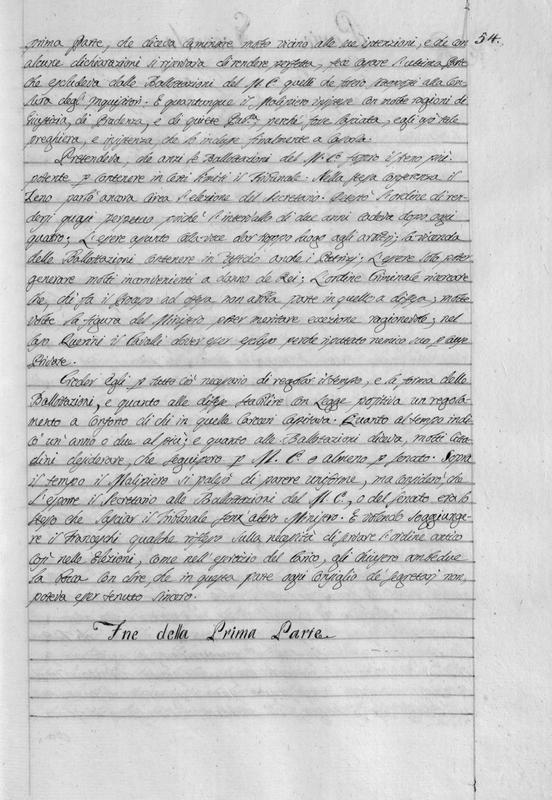 54.
prima Parte, che diceva caminare molto vicino alle sue intenzioni, e che con
alcune dichiarazioni si riputava di render perfetta, fece cavare l'ultima Parte
che escludeva dalle Ballottazioni del M. C. quelli che fossero
sura degl' Inquisitori. E quantunque il Malipiero insistesse con molte ragioni di
Giustizia, di Prudenza, e di quiete perché fosse lasciata, egli usò tale
preghiera, e insistenza che lo indusse finalmente a cavarla.
Pretendeva, che anzi le Ballottazioni del M. C. fossero il freno più
potente p contenere in certi limiti il Tribunale. Nella stessa conferenza il
Zeno parlò ancora circa l'elezione del Secretario. l'ordine di ren-
dersi quasi perpetuo poiché l'intervallo di due anni cadeva dopo ogni
quattro; L'essere a vita dar troppo luogo agli; la vicenda
delle Ballottazioni contenere in Ufficio anche i; L'essere solo poter
generare molti inconvenienti a danno de Rei; L'ordine Criminale ricercare
che, chi fa il Processo ad offesa non abbia parte in quello a difesa; molte
volte la figura del Ministro poter meritare eccezione ragionevole; nel
caso Querini il Cavalli dover esser escluso perché riputato nemico suo p cause
Private.
Creder Egli p tutto ciò necessario di regolar il tempo, e la forma delle
Ballottazioni, e quanto alle difese stabilire con Legge positiva un regola-
mento a conforto di chi in quelle Carceri capitava. Quanto al tempo indi-
cò un' anno o due al più; e quanto alle Ballottazioni diceva, molti Citta-
dini desiderare, che seguissero p M. C. o almeno p Senato. Sopra
il tempo il Malipiero si palesò di parere uniforme, ma considerò, che
l'esporre il Secretario alle Ballottazioni del M. C., o del Senato era lo
stesso che lasciar il Tribunale senz' altro Ministro. E volendo soggiunge-
re il Franceschi qualche riflesso sulla necessità di portare l'ordine antico
così nelle Elezioni, come nell' esercizio del Carico, gli chiusero ambedue
la bocca con dire, che in questa parte ogni Consiglio de' Segretarj non
poteva esser tenuto sincero.
Fne della Prima Parte